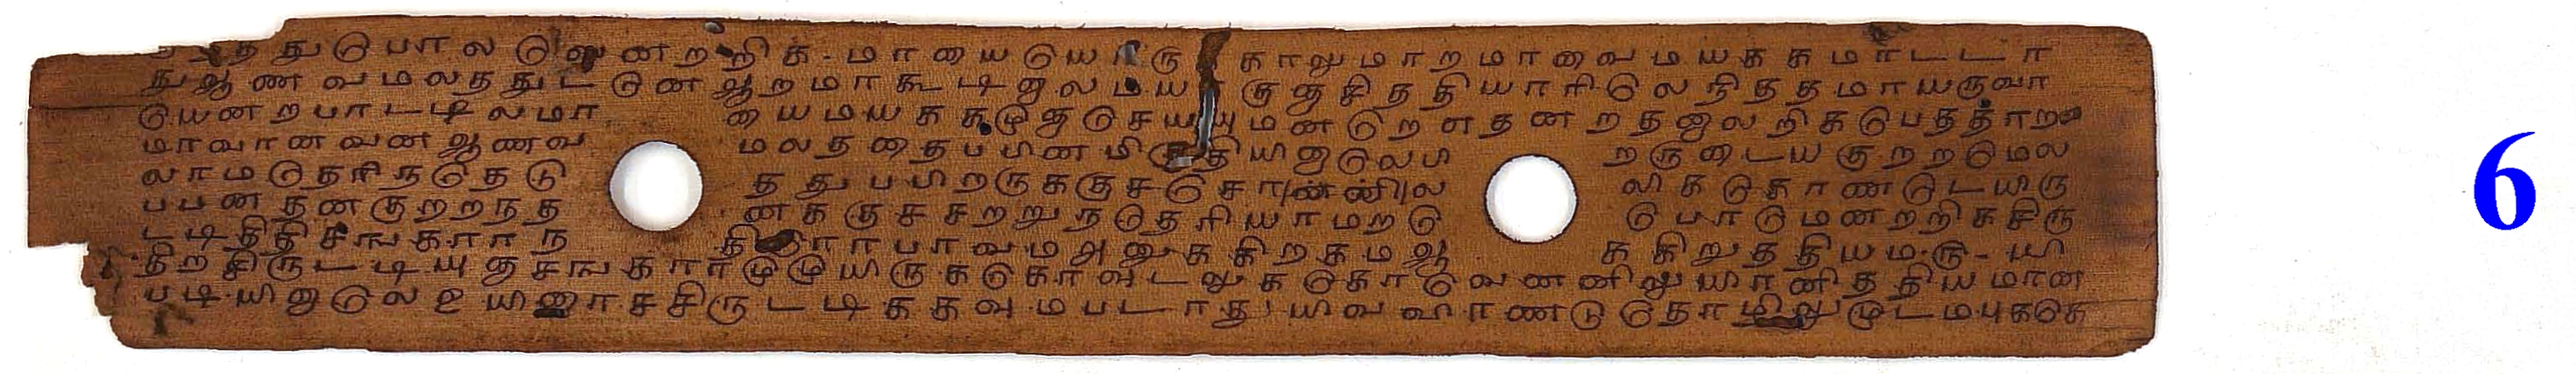 த்துபொலொன்றறிக - மாயையெயாரு காலுமாறமாவை மயககமாடடா
துஆணவமலதது டனெஆறமாகூடினுலமயாகுதுசிததியாரிலெ நிததமாயருவா
யெனறபாடடிலமா யைமயககமுதுசெயயுமனறெனதனறதனுலறிகபெதத்தாற
மாவானவனஆணவ மலததைபபினனமிருதியினுலெபி றருடையகுறறமெல
லாமதெரிநதெடு தது பபிறருககுசசொன்னில லிகுகொணடெயிரு
பபனதனகுறறநத னககுசசறறுநதெரியாமற பொமெனறறிகசிரு
டடிததிசஙகாரந திரோபாவமஅனுககிறகமஆ ககிறுததியமரு - யி
திறசிருடடியுதசஙகாரமுமுயிருககொவுடலுககொவெனனிலுயிரனிததியமான
படியினுலெஉயிரைசசிருடடிககவுமபடாது யிவவிரணடுதொழிலுமுடமபுகக
6